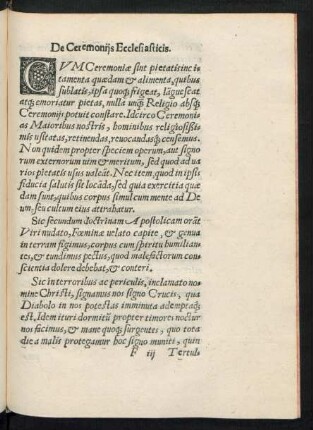 De Ceremonijs Ecclesiasticis.
CVM Ceremoniæ sint pietatis incita
tamenta quædam & alimenta, quibus
sublatis, ipsa quoq; frigeat, lāgueſcat
atq; emoriatur pietas, nulla unq̃ Religio absq;
Ceremonijs potuit constare. Idcirco Ceremoni
as Maioribus nostris, hominibus religiosissi
mis usitatas, retinendas, reuocandasq; censemus.
Non quidem propter speciem operum, aut signo
rum externorum uim & meritum, sed quod ad ua
rios pietatis usus ualeāt. Nec item, quod in ipsis
fiducia salutis sit locāda, sed quia exercitia quæ
dam sunt, quibus corpus simul cum mente ad De
um, seu cultum eius attrahatur.
Sic secundum doctrinam Apostolicam orāt
Viri nudato, Fœminæ uelato capite, & genua
in terram figimus, corpus cum spiritu humilian
tes, & tundimus pectus, quod malefactorum con
scientia dolere debebat, & conteri.
Sic in terroribus ac periculis, inclamato no
mine Christi, signamus nos signo Crucis, qua
Diabolo in nos potestas imminuta adempraq;
est, Idem ituri dormitū propter timores noctur
nos facimus, & mane quoq; surgentes, quo tota
die a malis protegamur hoc signo muniti, quin
F iij Tertul⸗